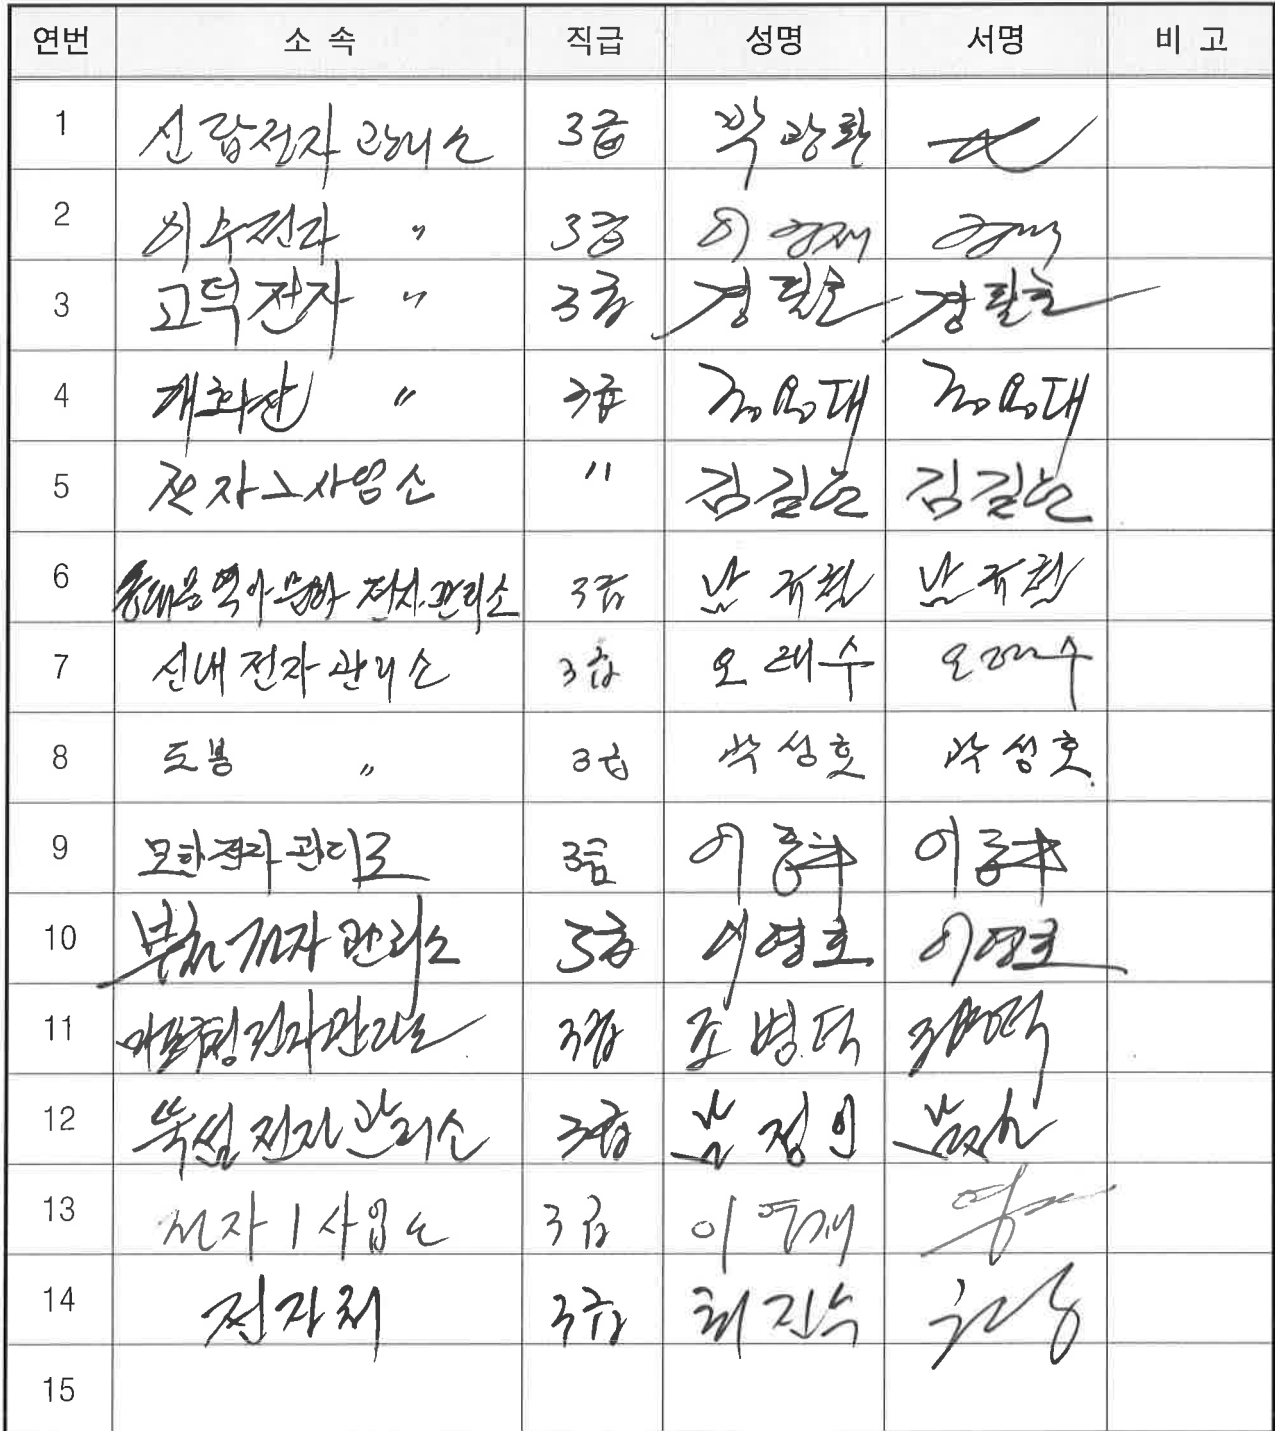 연번 소 속 직급 성명 서명 비 고
1 신답전자관리소 3급 박광환
2 이수전자 〃 3급 이형재
3 고덕전자 〃 3급 경필호 경필호
4 개화산 〃 3급 정용대 정용대
5 전자2사업소 〃 김길년 김길년
6 동대문역사문화 전자관리소 3급 남규철 남규철
7 신내전자관리소 3급 오래수 오래수
8 도봉 〃 3급 박성호 박성호
9 전자관리소 3급 이 이
10 부천전자관리소 3급 이영호 이영호
11 마포구청전자관리소 3급 조병덕 조병덕
12 뚝섬전자관리소 3급 남정인
13 전자1사업소 3급 이영재
14 전자처 3급 최진수
15